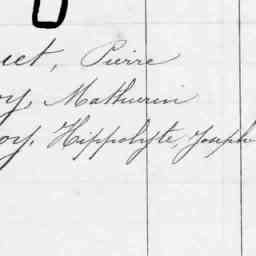 uet, Pierre
oy, Mathurin
oy, Hippolyte, Joseph